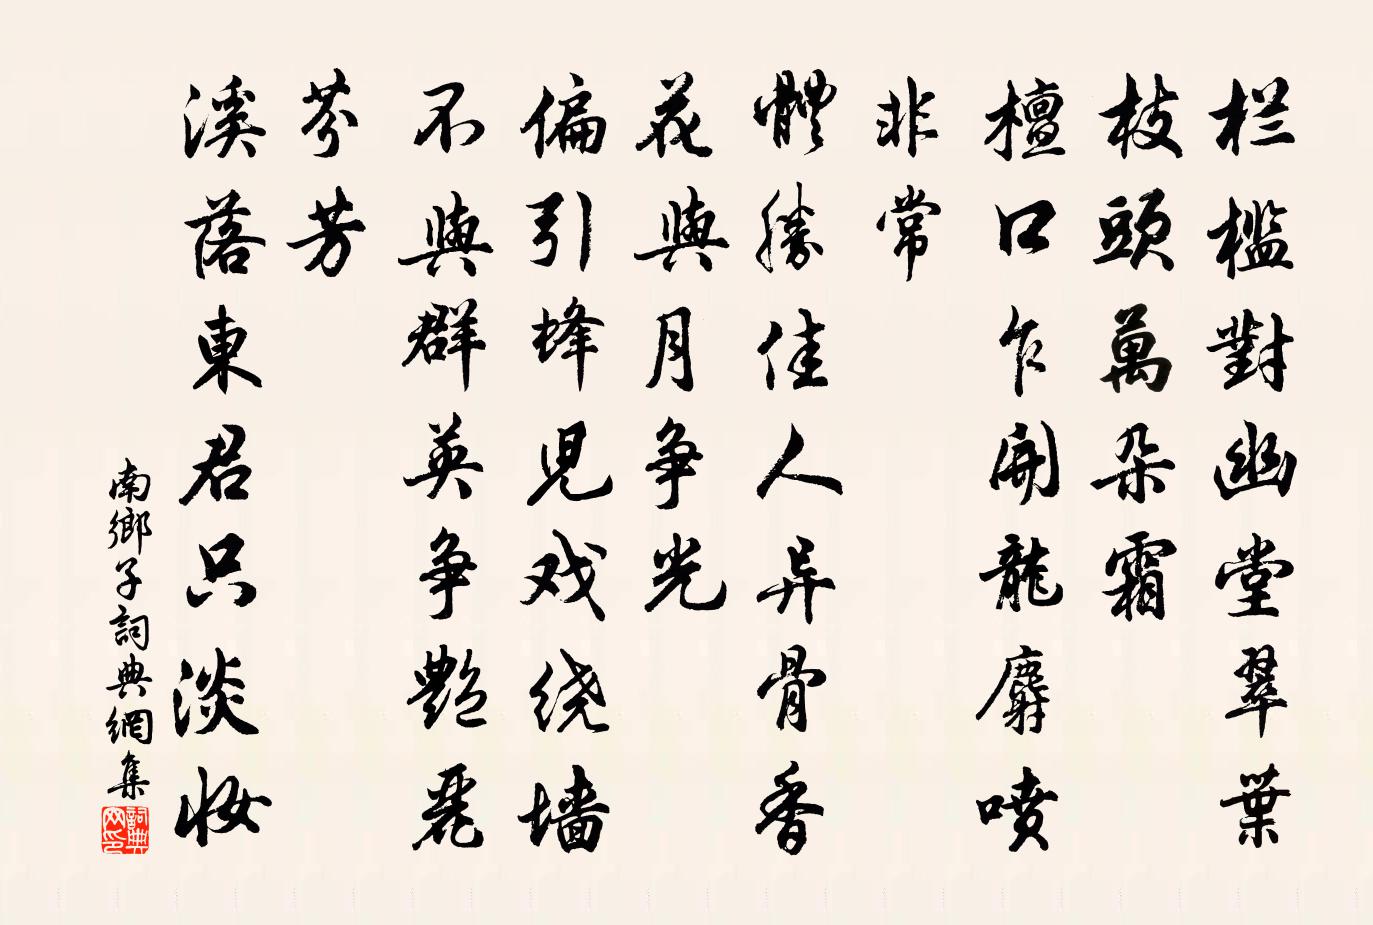 栏槛對幽堂翠葉
枝頭萬朵霜
檀口乍開龍麝噴
非常
體勝佳人异骨香
花與月争光
偏引蜂児戏绕墙
不與群英争艷麗
芬芳
溪落東君只淡妆
南鄉子詞典網集
詞典
网印